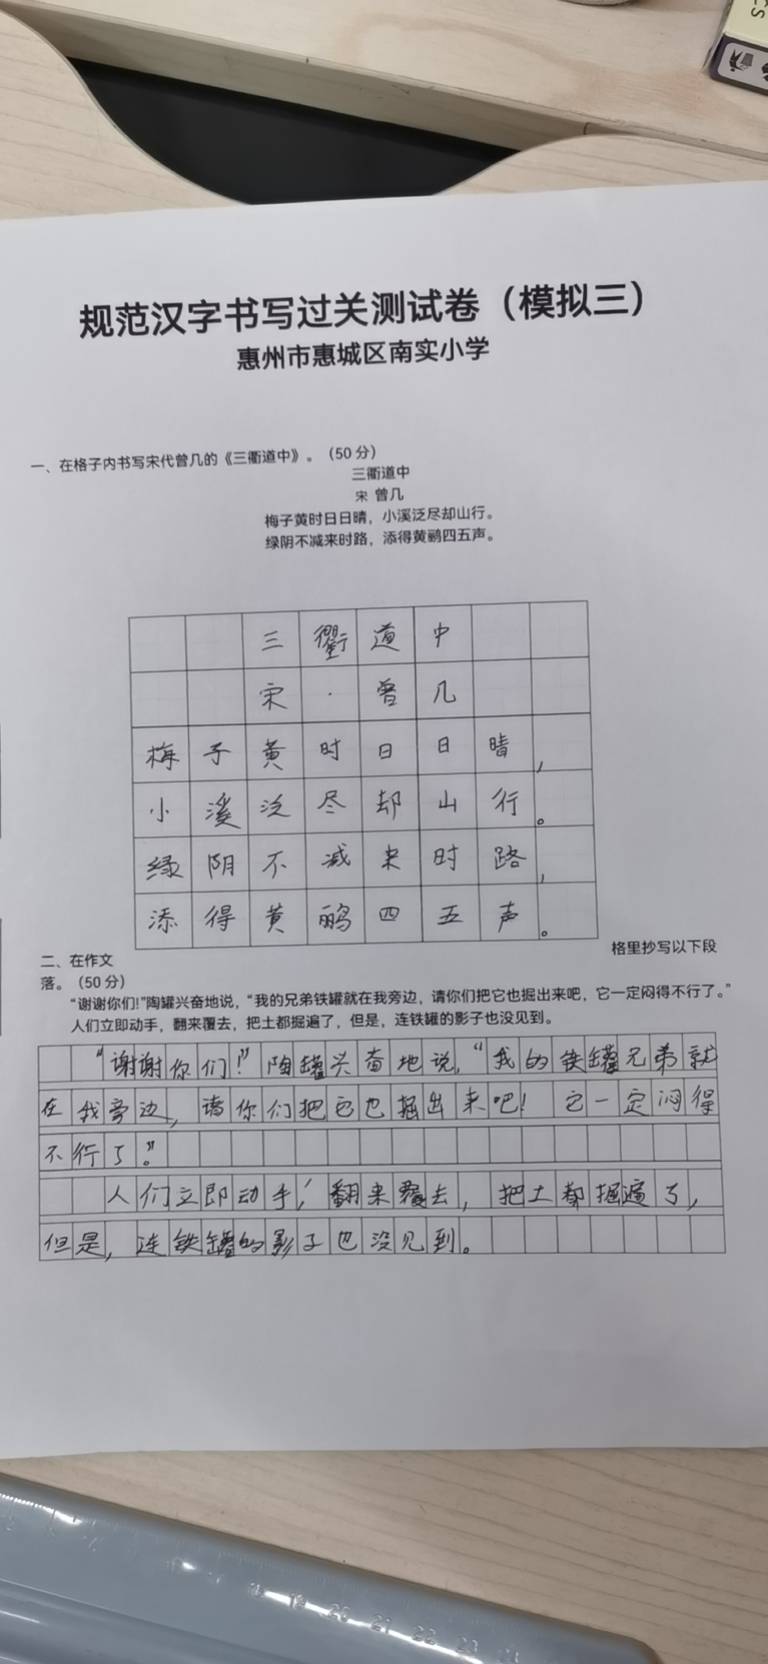 规范汉字书写过关测试卷（模拟三）
惠州市惠城区南实小学
一、在格子内书写宋代曾几的《三衢道中》。（50分）
三衢道中
宋 曾几
梅子黄时日日晴，小溪泛尽却山行。
绿阴不减来时路，添得黄鹂四五声。
三衢道中
宋·曾几
梅子黄时日日晴，
小溪泛尽却山行。
绿阴不减来时路，
添得黄鹂四五声。
二、在作文 格里抄写以下段
落。（50分）
“谢谢你们!”陶罐兴奋地说，“我的兄弟铁罐就在我旁边，请你们把它也掘出来吧，它一定闷得不行了。”
人们立即动手，翻来覆去，把土都掘遍了，但是，连铁罐的影子也没见到。
“谢谢你们！”陶罐兴奋地说，“我的铁罐兄弟就
在我旁边，请你们把它也掘出来吧！它一定闷得
不行了。”
人们立即动手，翻来覆去，把土都掘遍了，
但是，连铁罐的影子也没见到。